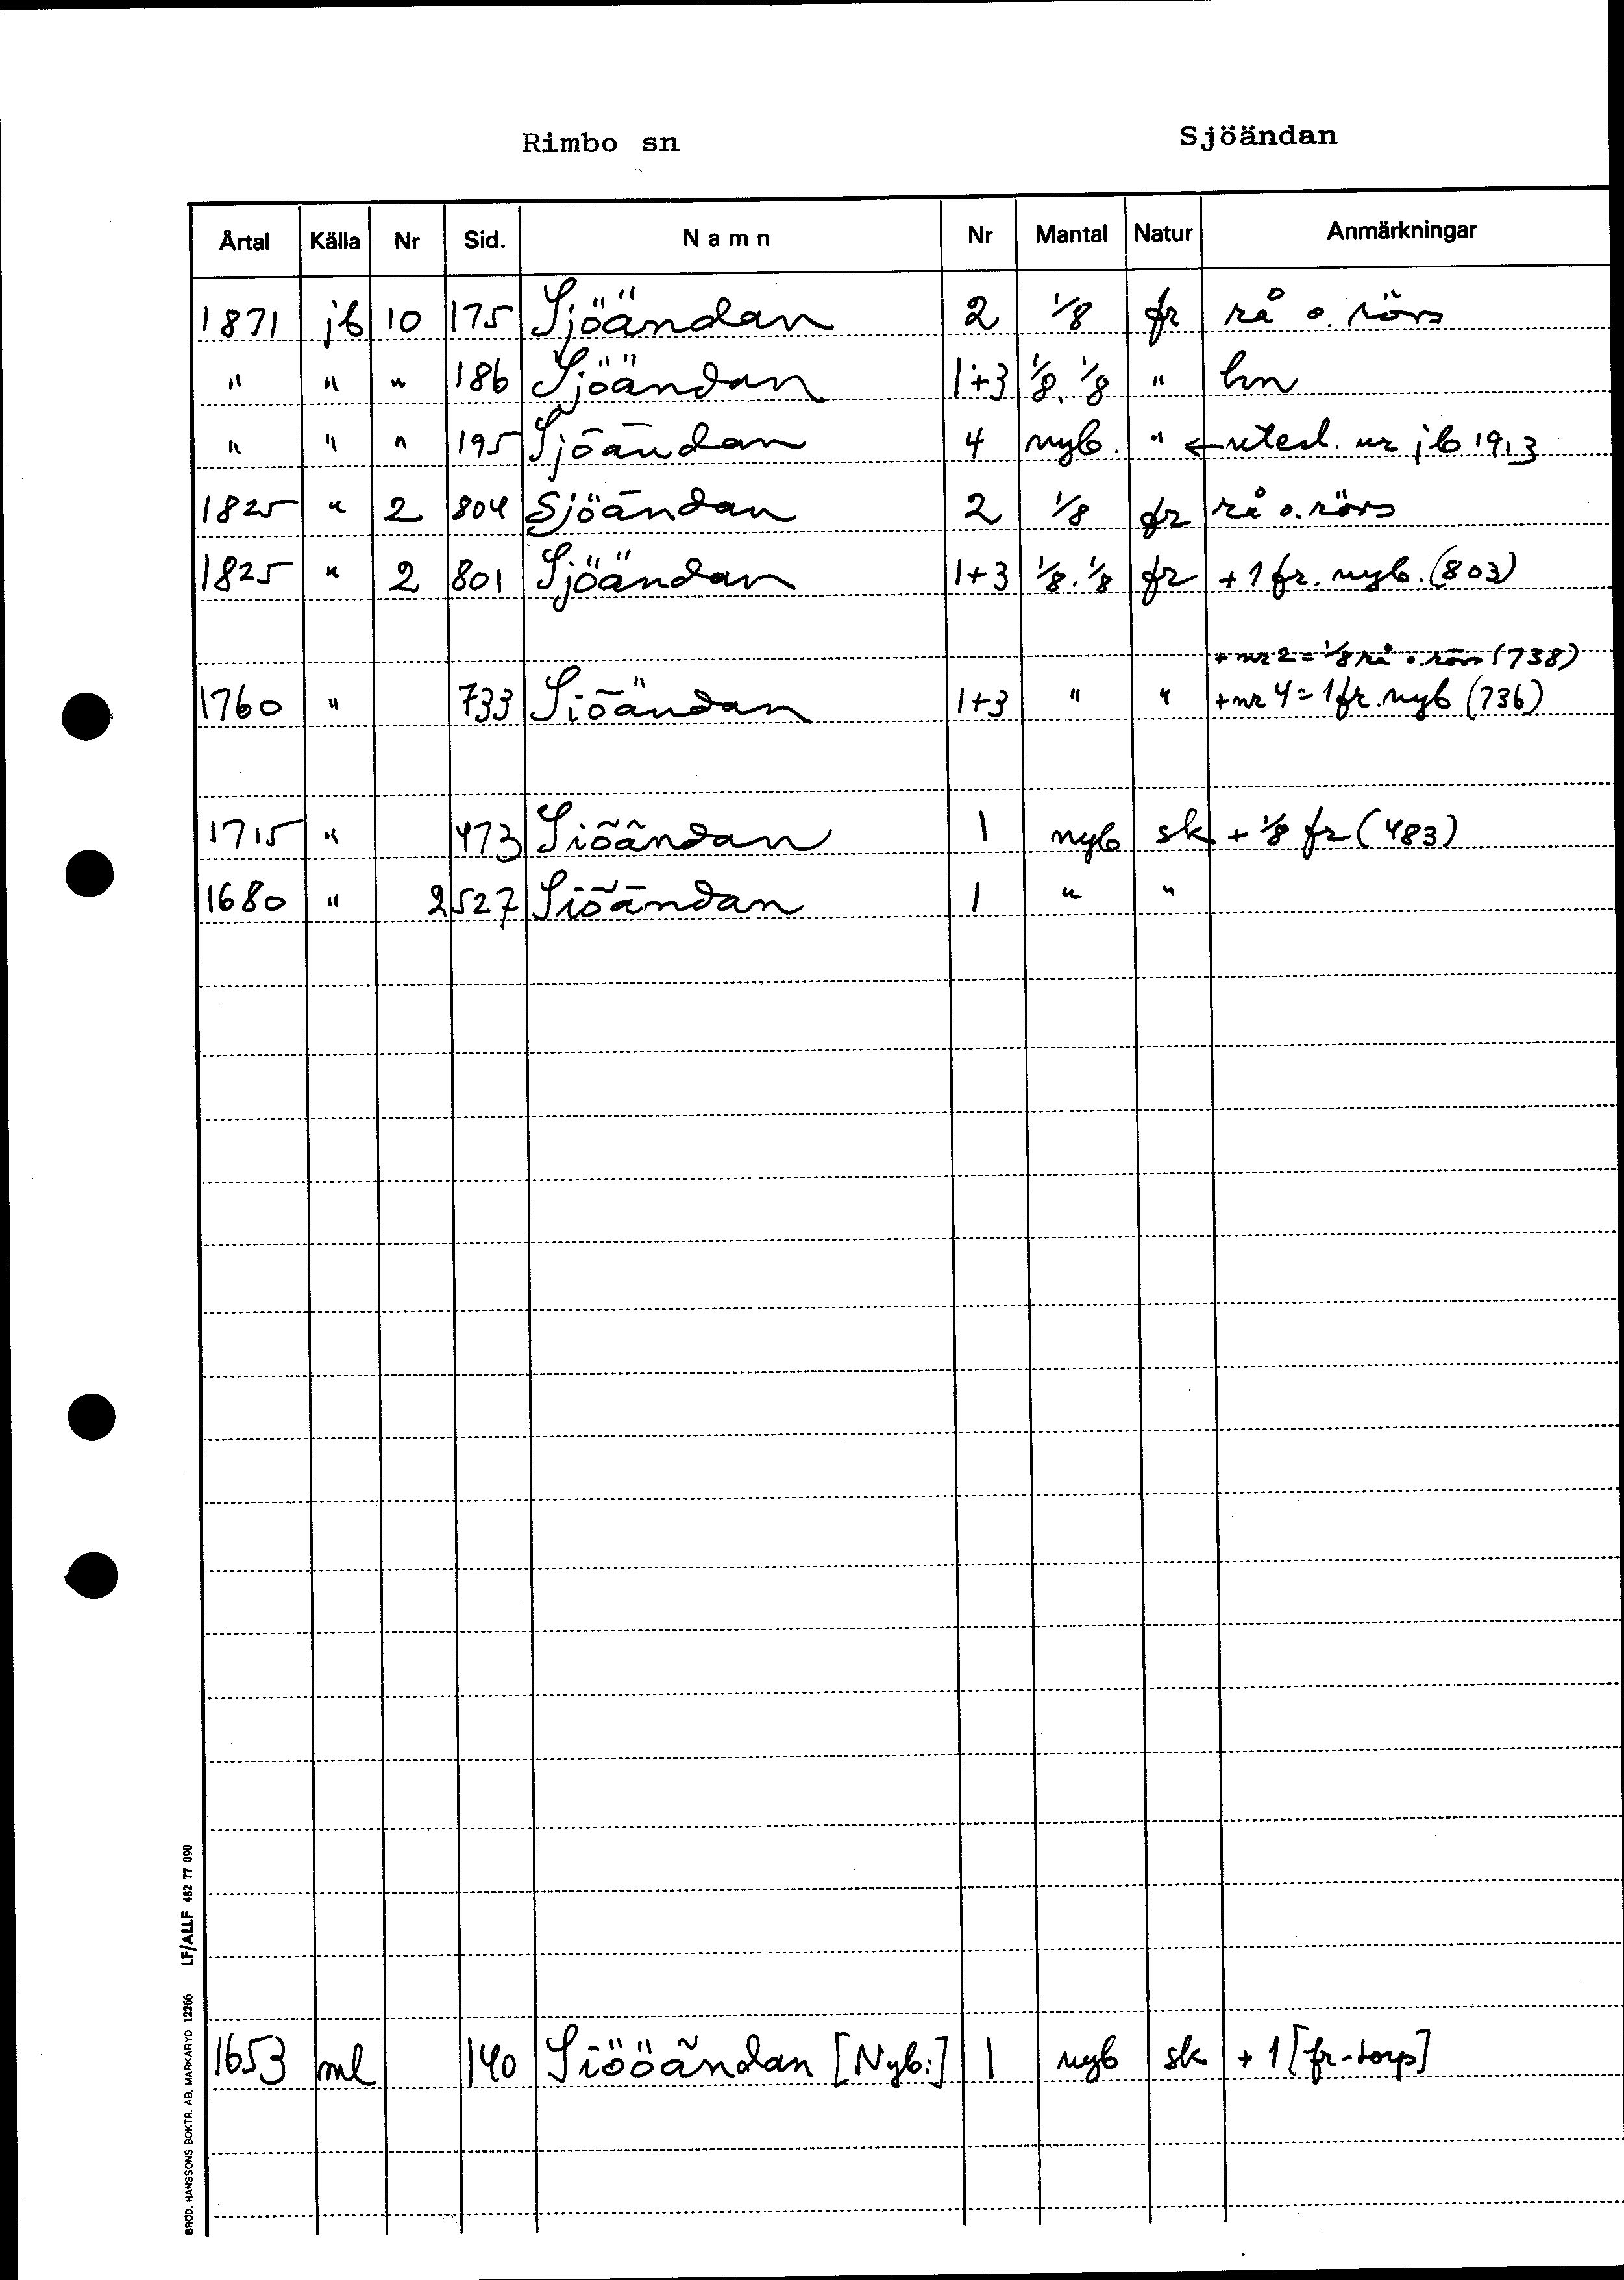 Rimbo sn Sjöändan
Årtal Källa Nr Sid. Namn Nr Mantal Natur Anmärkningar
1871 jb 10 175 Sjöändan 2 1/8 fr rå o. rörs
" " " 186 Sjöändan 1+3 1/8. 1/8 " hn
" " " 195 Sjöändan 4 nyb. " ← utesl. ur jb 1913
1825 " 2 804 Sjöändan 2 1/8 fr rå o. rörs
1825 " 2 801 Sjöändan 1+3 1/8. 1/8 fr + 1 fr. nyb. (803)
+ nr 2 = 1/8 rå o. rörs (738)
1760 " 733 Siöändan 1+3 " " + nr 4 = 1 fr. nyb (736)
1715 " 473 Siöändan 1 nyb sk + 1/8 fr (483)
1680 " 2527 Siöändan 1 " "
1653 ml 140 Siööändan [Nyb:] 1 nyb sk + 1 [fr-torp]
BRÖD. HANSSONS BOKTR. AB, MARKARYD 12266 LF/ALLF 482 77 090